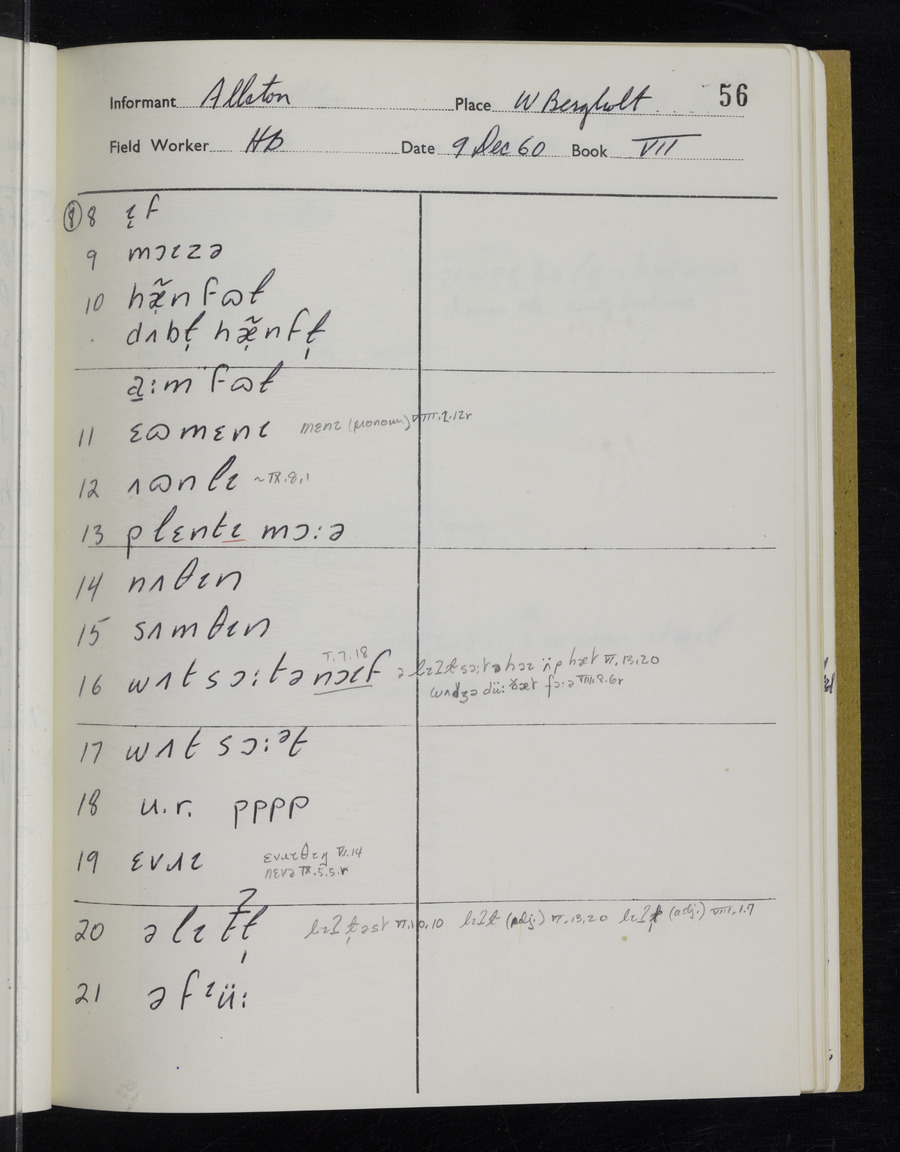 Informant Allston Place W Bergholt 56
Field Worker HB Date 9 Dec 60 Book VII
⑧ 8 ɪ̨f
9 mɔɪzə
10 hæ̣̃n fɷɫ
dʌbɫ̩ hæ̣̃nfɫ̩
a̱:m fɷɫ
11 ɛɷmɛnɪ mɛnɪ (pronoun) VIII.2.12r
12 ʌɷnlɪ ~IX.8.1
13 plɛntɪ mɔ:ə
14 nʌθɪn
15 sʌmθɪn
16 wʌt sɔ:tə nɔɪf V.7.18
wʌdʒə dü: ðæt fɔ:ə VIII.8.6r
17 wʌt sɔ:ᵊt
18 u.r. pppp
19 ɛvɹɪ ɛvɹɪθɪŋ VI.14
nɛvə IX.5.5.r
20 ə lɪʔɫ̩ lɪʔɫ̩əst VI.10.10 lɪʔɫ (adj.) VI.13.20 lɪʔɫ̩ (adj.) VIII.1.7
21 ə fɪü: